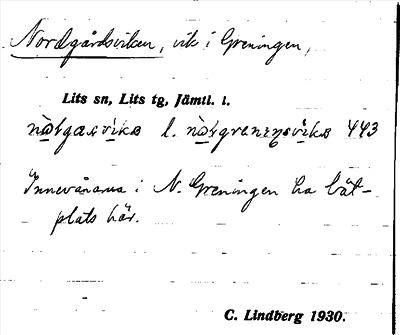 Nordgårdsviken, vik i Greningen,
Lits sn, Lits tg, Jämtl. l.
l. 443
Innevånarna i N. Greningen ha båt-
plats här.
C. Lindberg 1930.